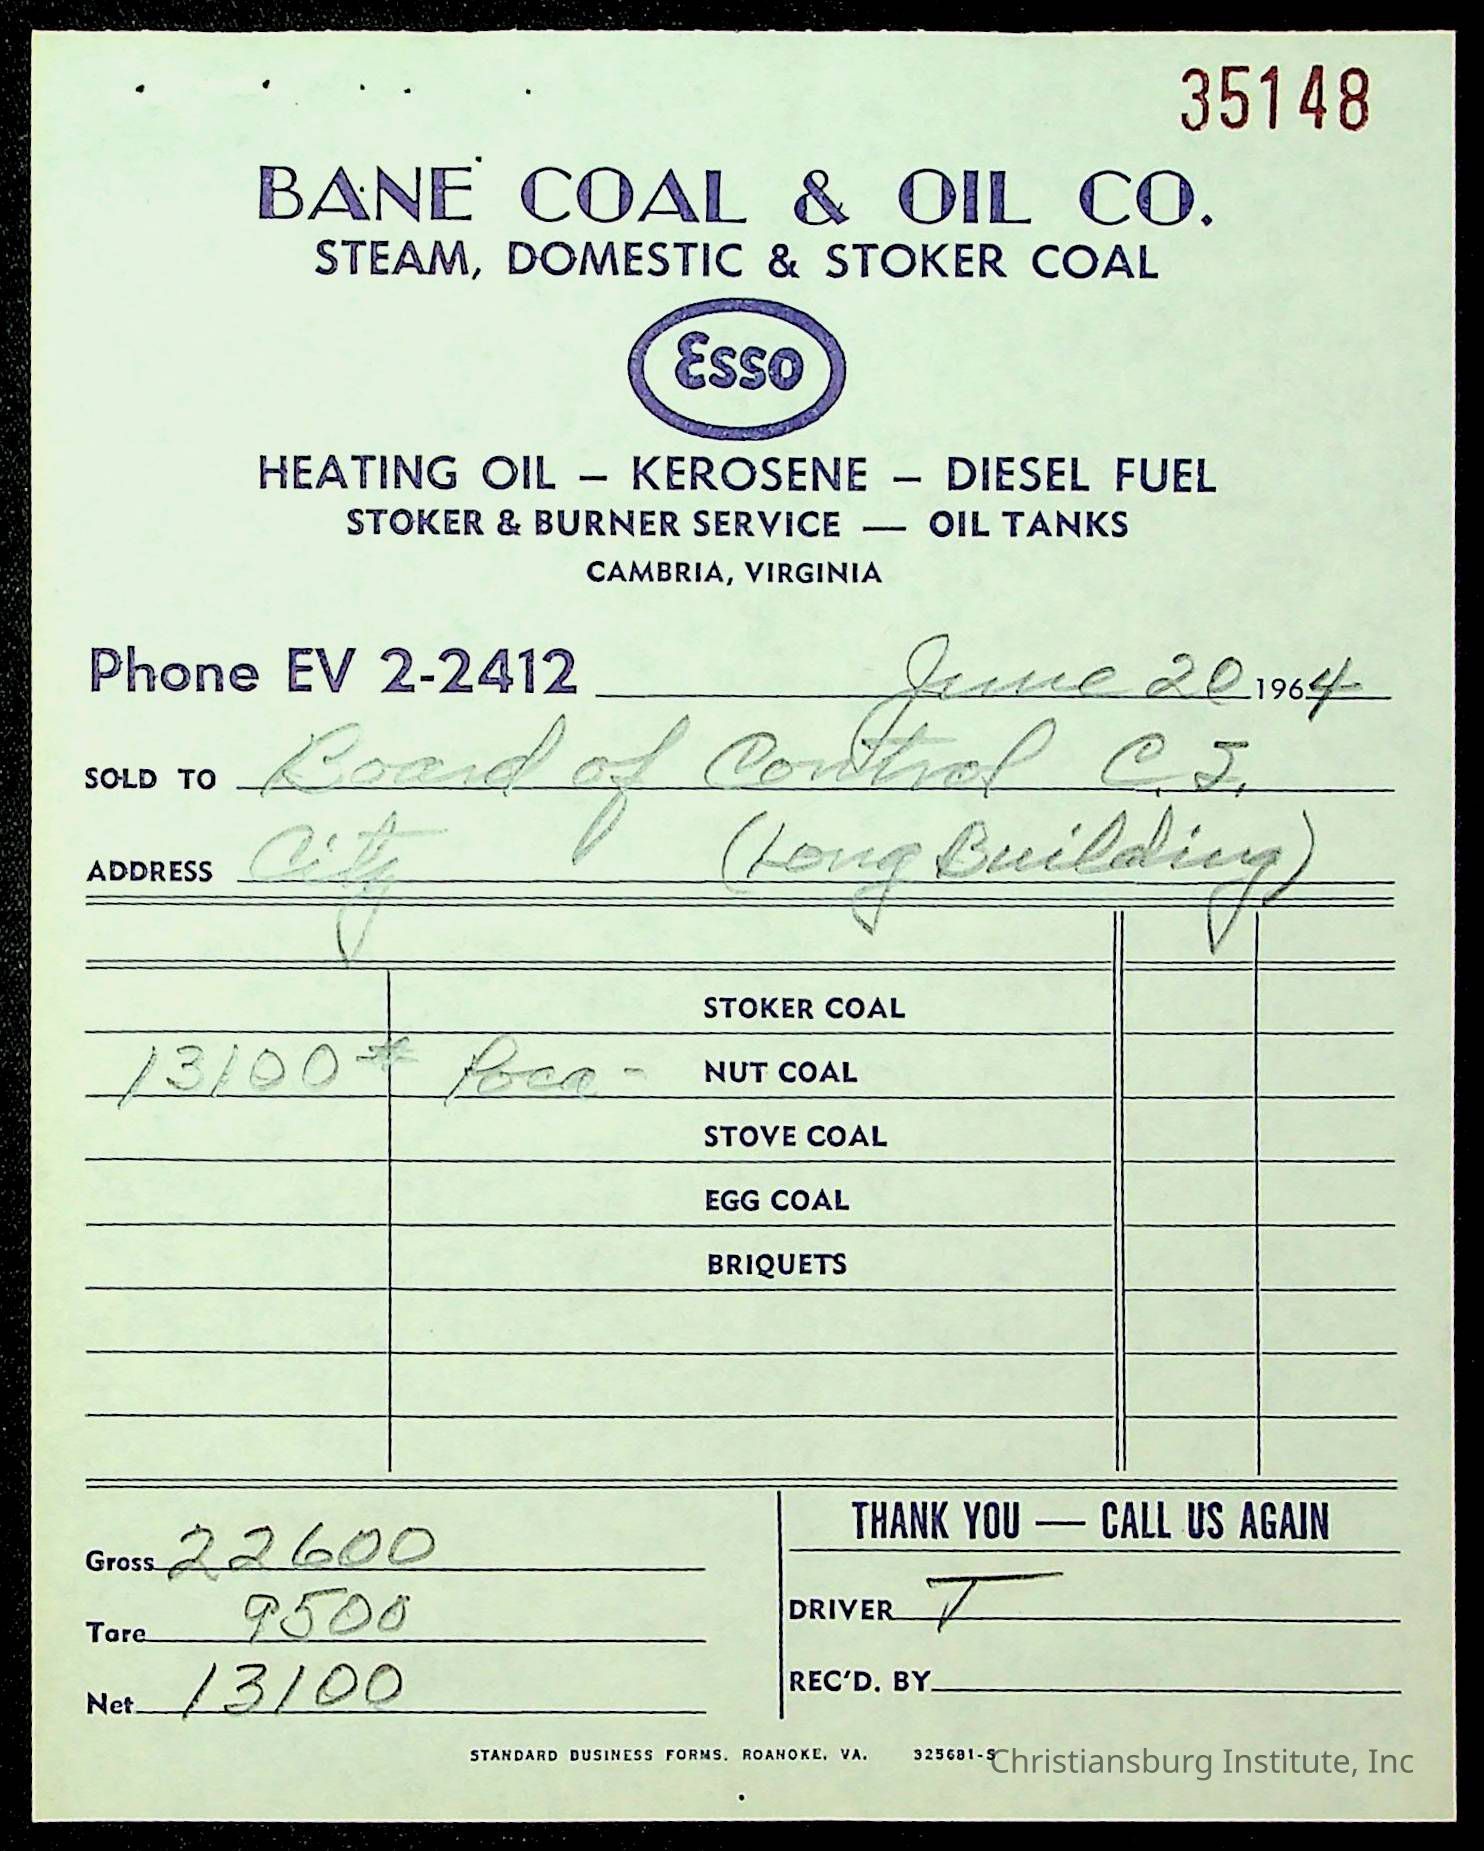 35148
BANE COAL & OIL CO.
STEAM, DOMESTIC & STOKER COAL
Esso
HEATING OIL – KEROSENE – DIESEL FUEL
STOKER & BURNER SERVICE — OIL TANKS
CAMBRIA, VIRGINIA
Phone EV 2-2412 June 20 1964
SOLD TO Board of Control C. I.
ADDRESS City (Long Building)
STOKER COAL
13100 # Poca - NUT COAL
STOVE COAL
EGG COAL
BRIQUETS
Gross 22600
Tare 9500
Net 13100
THANK YOU — CALL US AGAIN
DRIVER T
REC'D. BY
STANDARD BUSINESS FORMS. ROANOKE, VA. 325681-S
Christiansburg Institute, Inc